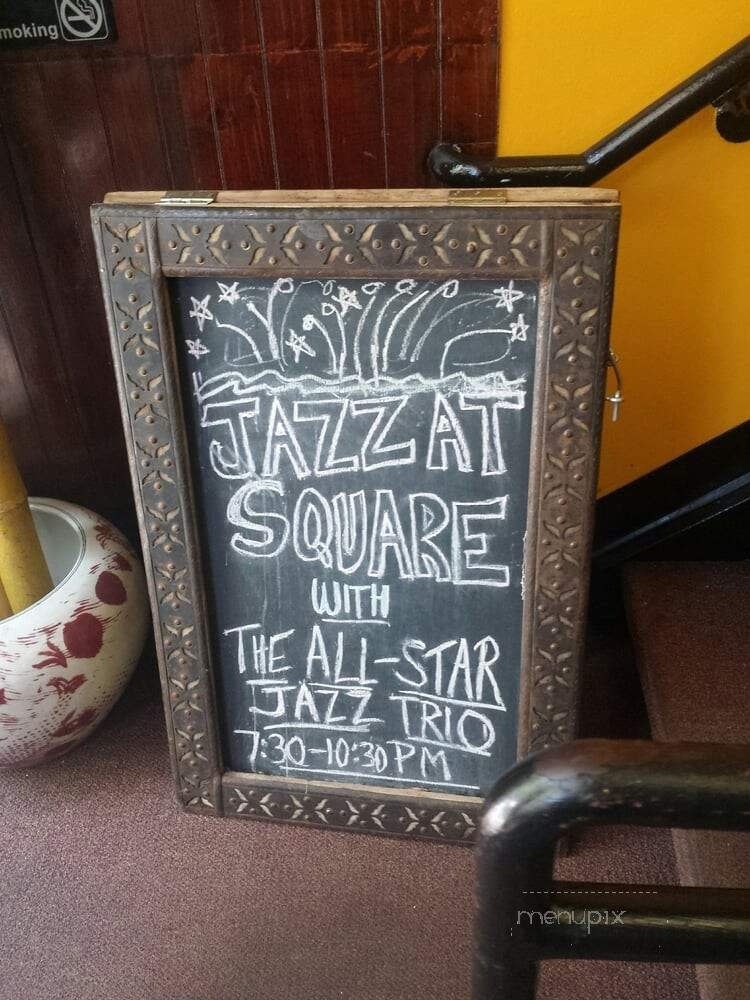 moking
JAZZ AT
SQUARE
WITH
THE ALL-STAR
JAZZ TRIO
7:30-10:30PM
menupix